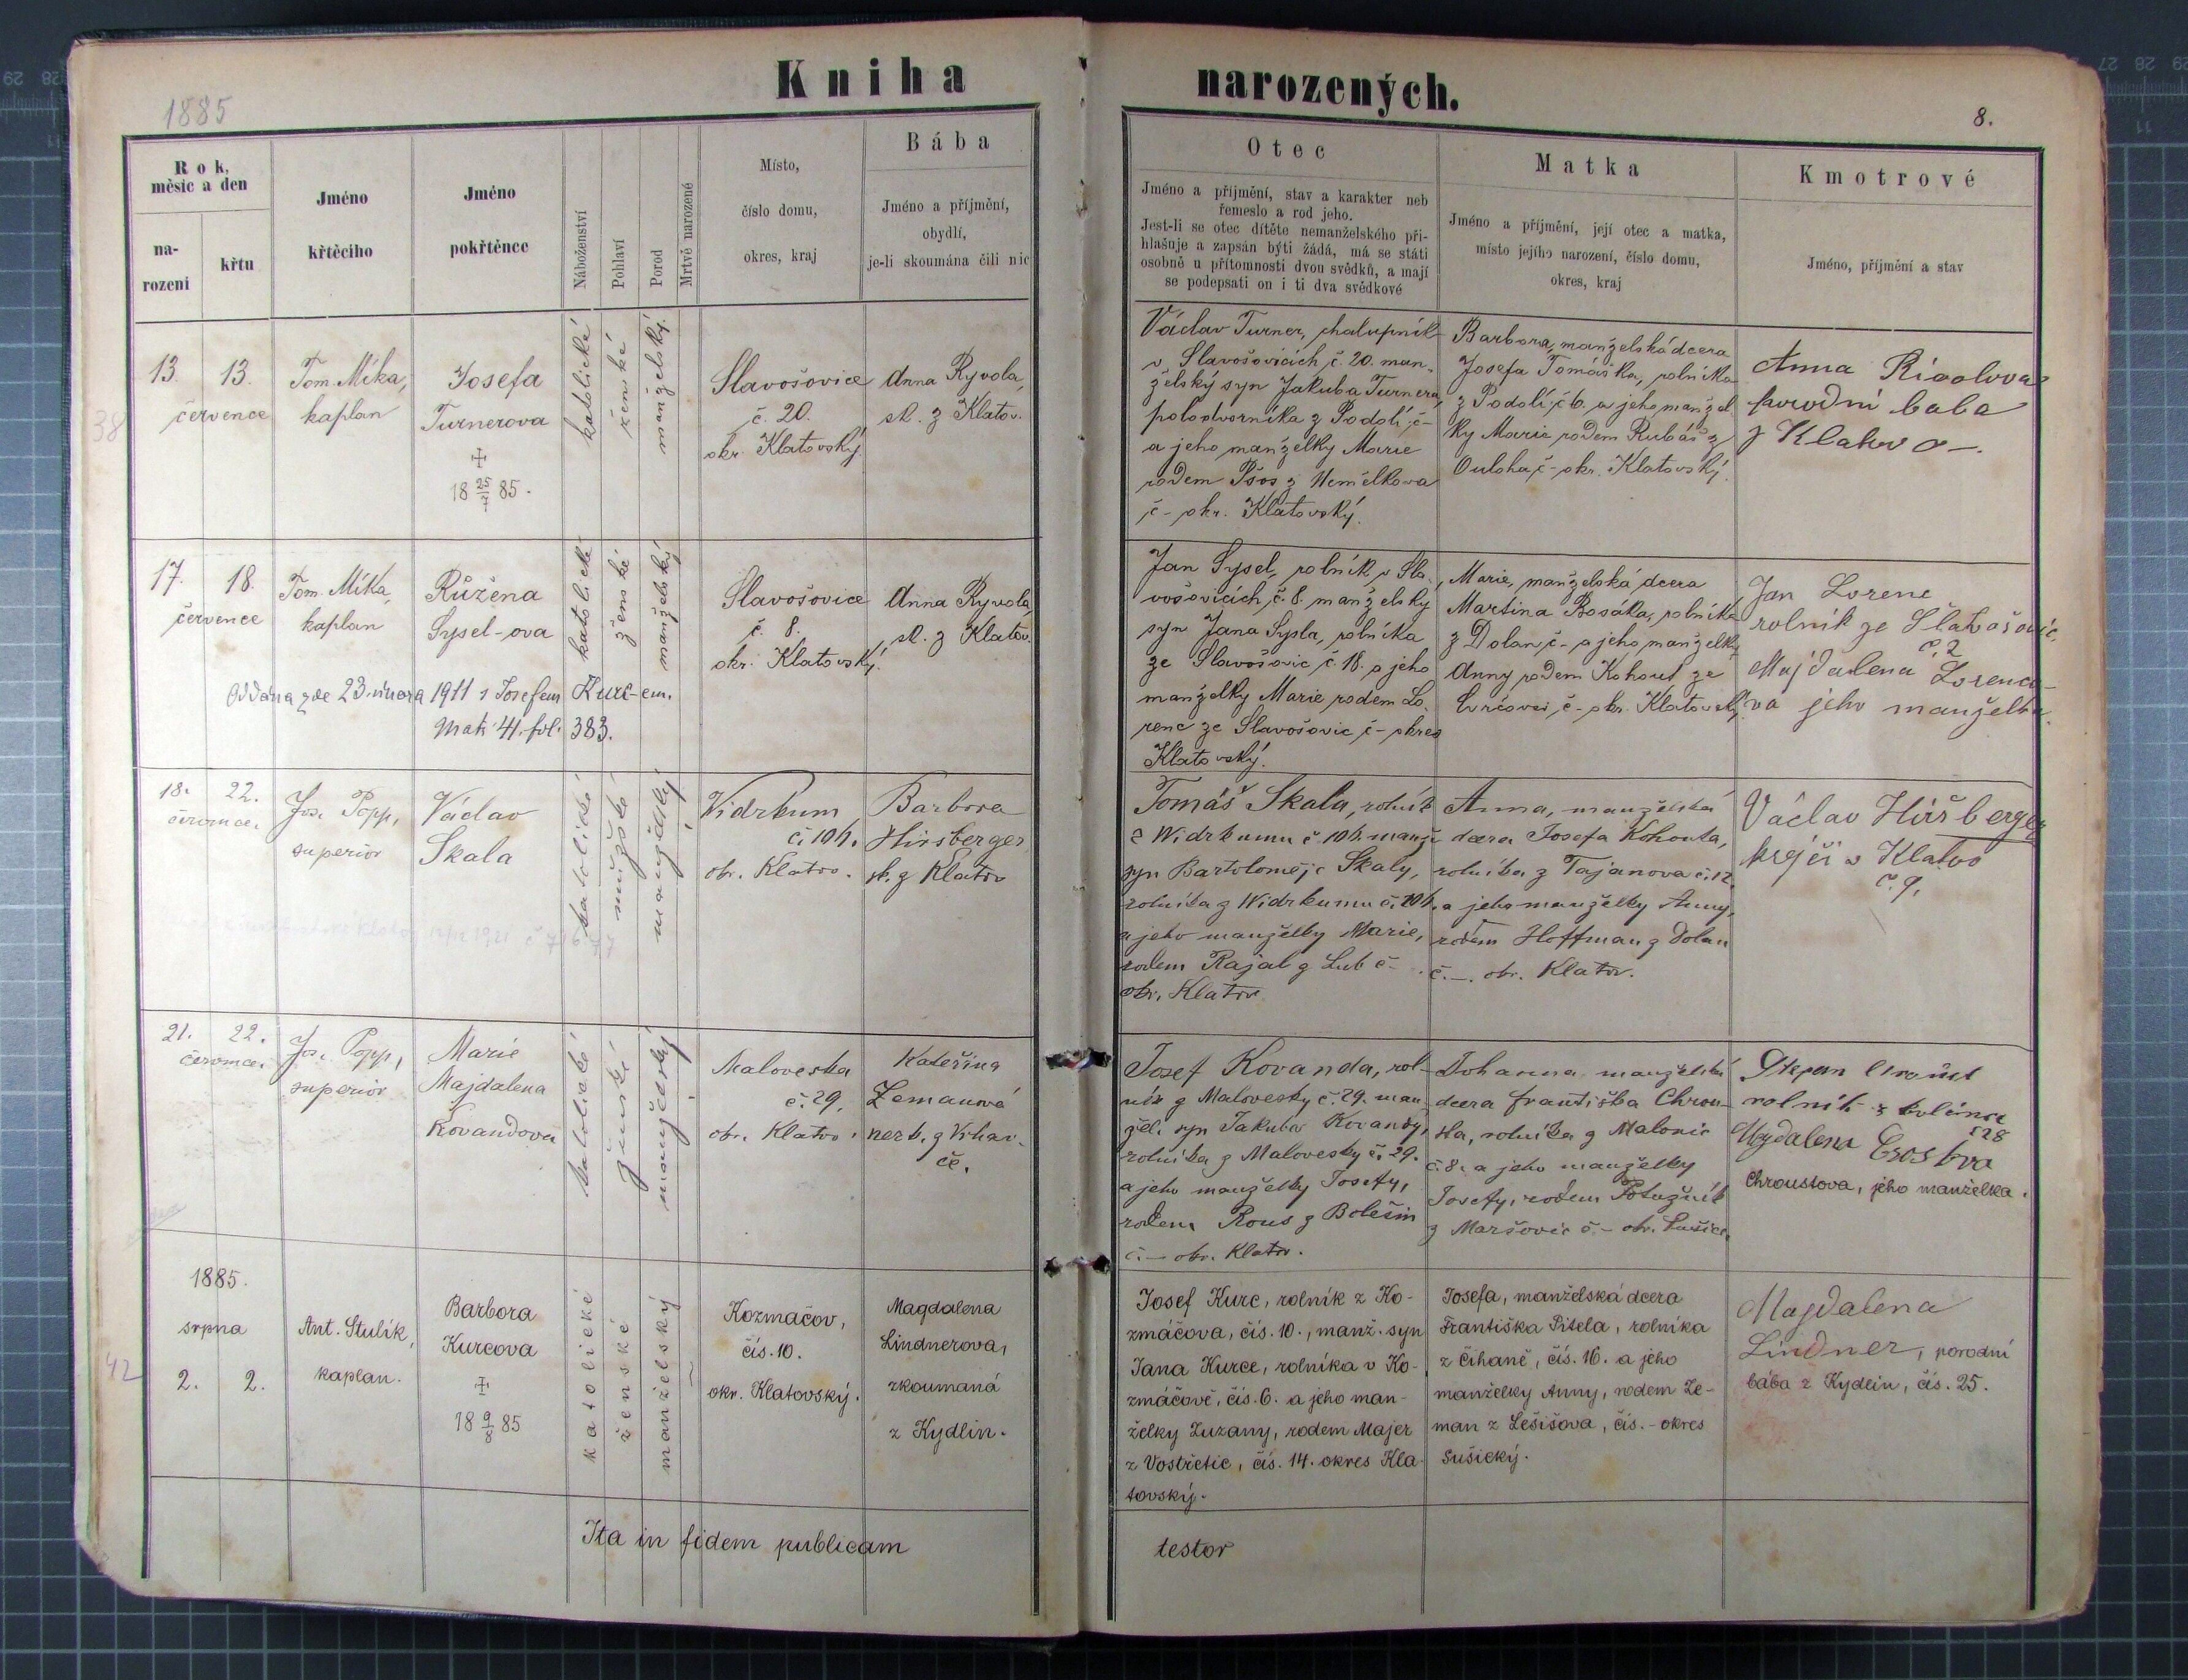 1885
Kniha narozených.
8.
Rok,
měsíc a den
na-
rození
křtu
Jméno
křtěcího
Jméno
pokřtěnce
Náboženství
Pohlaví
Porod
Mrtvě narozené
Místo,
číslo domu,
okres, kraj
Bába
Jméno a příjmění,
obydlí,
je-li skoumána čili nic
Otec
Jméno a příjmění, stav a karakter neb
řemeslo a rod jeho.
Jest-li se otec dítěte nemanželského při-
hlašuje a zapsán býti žádá, má se státi
osobně u přítomnosti dvou svědků, a mají
se podepsati on i ti dva svědkové
Matka
Jméno a příjmění, její otec a matka,
místo jejího narození, číslo domu,
okres, kraj
Kmotrové
Jméno, příjmění a stav
38
13. 13.
července
Tom. Míka,
kaplan
Josefa
Turnerova
18 25/7 85.
katolické
ženské
manželský
Slavošovice
č. 20.
okr. Klatovský
Anna Ryvola,
sk. z Klatov.
Václav Turner, chalupník
v Slavošovicích č. 20. man-
želský syn Jakuba Turnera,
polodvorníka z Podolí č-
a jeho manželky Marie
rodem Psos z Nemělkova
č- okr. Klatovský.
Barbora, manželská dcera
Josefa Tomáška, rolníka
z Podolí č 6. a jeho manžel
ky Marie rodem Rubáš z
Ouloha, č- okr. Klatovský.
Anna Rivolova
porodní baba
z Klatov
17. 18.
července
Tom. Míka,
kaplan
Růžena
Sysel-ova
Oddána zde 23. února 1911 s Josefem Kurc-em.
Mat. 41. fol. 383.
katolické
ženské
manželský
Slavošovice
č. 8.
okr. Klatovský.
Anna Ryvola,
sk. z Klatov.
Jan Sysel, rolník v Sla-
vošovicích, č. 8. manželsky
syn Jana Sysla, rolníka
ze Slavošovic č. 18. a jeho
manželky Marie rodem Lo-
renc ze Slavošovic č- okres
Klatovský.
Marie, manželská dcera
Martina Bosáka, rolníka
z Dolan, č- a jeho manželky
Anny rodem Kohout ze
č- okr. Klatovský.
Jan Lorenc
rolník ze Slavošovic,
č. 2
Majdalena Lorenco-
va jeho manželka.
18. 22.
července.
Jos. Popp,
superior
Václav
Skala
katolické
mužské
manželský
Vidrkum
č. 10h.
okr. Klatov.
Barbora
Hirsberger
sk. z Klatov
Tomáš Skala, rolník
z Widrkumu č. 10h. manž.
syn Bartoloměje Skaly,
rolníka z Widrkumu č. 10h.
a jeho manželky Marie,
rodem Rajal z Lub č-
okr. Klatov
Anna, manželská
dcera Josefa Kohouta,
rolníka z Tajanova č. 12.
a jeho manželky Anny,
rodem Hoffman z Dolan
č. -. okr. Klatov.
Václav Hiršberger
krejčí v Klatov
č. 9.
21. 22.
července.
Jos. Popp,
superior
Marie
Majdalena
Kovandova
katolické
ženské
manželský
Maloveska
č. 29.
okr. Klatov.
Kateřina
Zemanová
nezk. z Vrhav-
če.
Josef Kovanda, rol-
ník z Malovesky č. 29. man-
žel. syn Jakuba Kovandy,
rolníka z Malovesky č. 29.
a jeho manželky Josefy,
rodem Rous z Bolešin
č. - okr. Klatov.
Johanna manželská
dcera Františka Chrou-
sta, rolníka z Malonic
č. 8. a jeho manželky
Josefy, rodem Potužník
z Maršovic č. - okr. Sušice.
Štepan
rolník z Kolince
č 28
Magdalena
Chroustova, jeho manželka.
42
1885.
srpna
2. 2.
Ant. Stulík,
kaplan.
Barbora
Kurcova
18 9/8 85
katolické
ženské
manželský
Kozmačov,
čís. 10.
okr. Klatovský.
Magdalena
Lindnerova,
zkoumaná
z Kydlin.
Josef Kurc, rolník z Ko-
zmáčova, čís. 10., manž. syn
Jana Kurce, rolníka v Ko-
zmáčově, čís. 6. a jeho man-
želky Zuzany, rodem Majer
z Vostřetic, čís. 14. okres Kla-
tovský.
Josefa, manželská dcera
Františka Pitela, rolníka
z Čihaně, čís. 16. a jeho
manželky Anny, rodem Ze-
man z Lešišova, čís. - okres
Sušický.
Magdalena
Lindner, porodní
bába z Kydlin, čís. 25.
Ita in fidem publicam testor